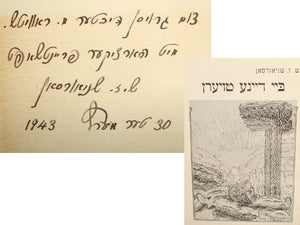 צום גרויסן דיכטער מ. ראוויטש.
מיט הארציקער פריינטשאפט
ש. ז. שניאורסאן
30 טער מערץ 1943
ש. ז. שניאורסאן
ביי דיינע טויערן